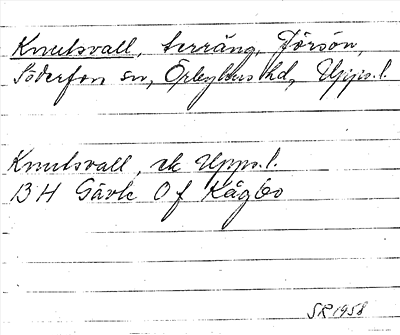 Knutsvall, terräng, Jörsön,
Söderfors sn, Örbyhus hd, Upps. l.
Knutsvall, ek Upps. l.
13 H Gävle 0 f Kågbo
SR 1958